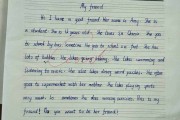 My friend
Hi I have a good friend. Her name is Amy. She is
a student. She is 9 years old. She lives in She
to school by bus. Sometime she goes to school on foot. She has
lots of hobbies. She likes going
listening to music. She also likes doing word puzzles. She often
goes to supermarket with her mother. She likes playing sports
very much. In she likes running exercise. This is my
friend! Do you want to be her friend?